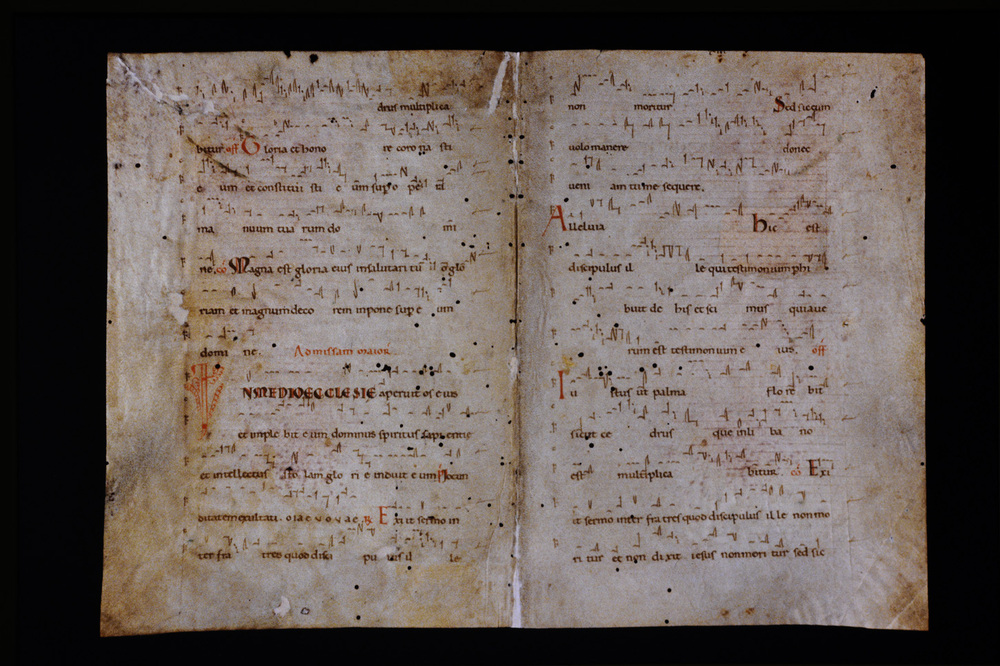 drus multiplica
bitur. off Gloria et hono re coro na sti
e um et constitui sti e um sup o pe
ma nuum tua rum do mi
ne. co Magna est gloria eius insalutari tu o glo
riam et magnum deco rem inpone sup e um
domi ne. Ad missam maior
IN MEDIO ECCLESIE aperuit os eius
et imple bit e um dominus spiritus sapientie
et intellectus sto lam glo ri e induit e um Iocun
ditatem exultati. o l a e v o v a e. R Exi it sermo in
ter fra tres quod disci pu us il le
non moritur Sed sic eum
uolo manere donec
ueni am tu me sequere.
Alleluia hic est
discipulus il le qui testimonium phi
buit de his et sci mus quia ue
rum est testimonium e ius. off
Iu stus ut palma flo re bit
sicut ce drus que in li ba no
est multiplica bitur. co Exi
it sermo inter fra tres quod discipulus il le non mo
ri tur et non dixit iesus non mori tur sed sic